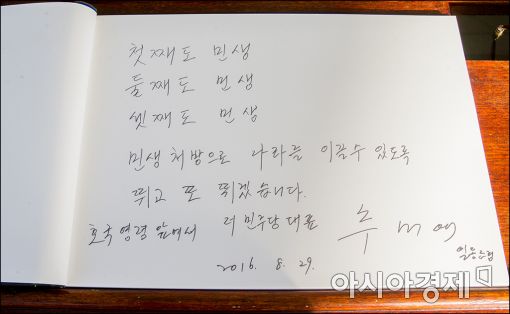 첫째도 민생
둘째도 민생
셋째도 민생
민생처방으로 나라를 이끌수 있도록
뛰고 또 뛰겠습니다.
호국영령 앞에서 더민주당대표 추미애
일동
2016. 8. 29.
아시아경제